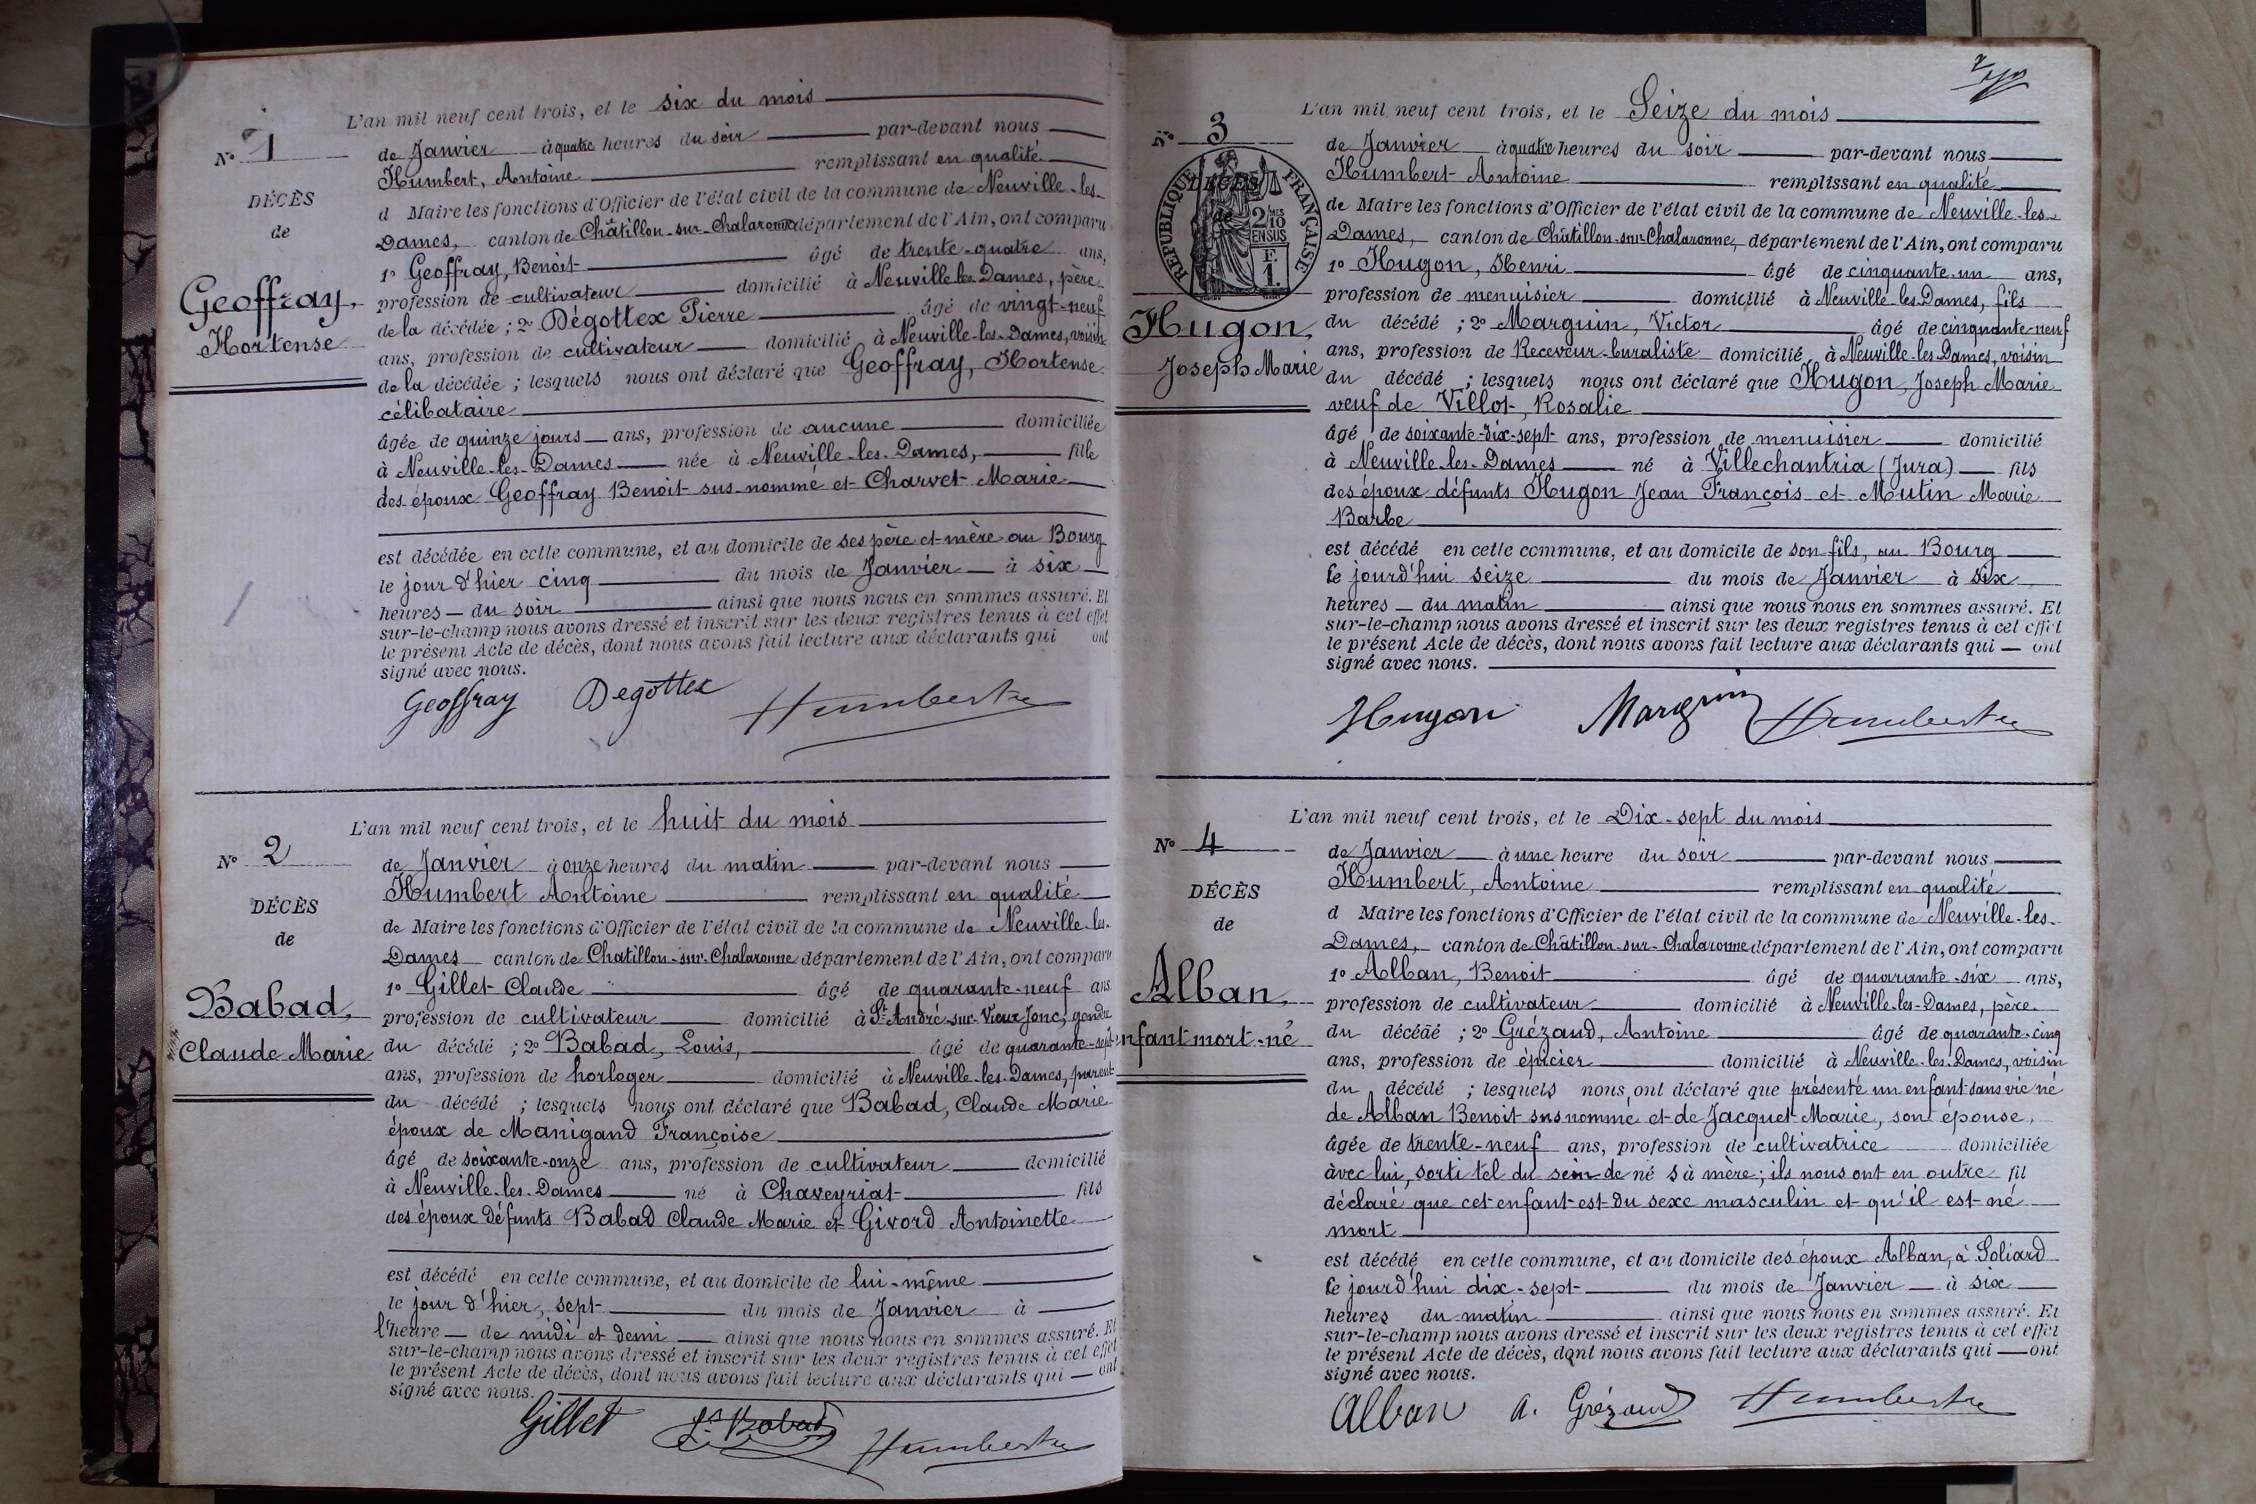 N° 1
DÉCÈS
de
Geoffray,
Hortense
L'an mil neuf cent trois, et le six du mois
de Janvier à quatre heures du soir par-devant nous
Humbert, Antoine remplissant en qualité
d Maire les fonctions d'Officier de l'état civil de la commune de Neuville-les-
Dames, canton de Châtillon-sur-Chalaronne département de l'Ain, ont comparu
1° Geoffray, Benoit âgé de trente-quatre ans,
profession de cultivateur domicilié à Neuville-les-Dames, père
de la décédée ; 2° Dégottex Pierre âgé de vingt-neuf
ans, profession de cultivateur domicilié à Neuville-les-Dames, voisin
de la décédée ; lesquels nous ont déclaré que Geoffray, Hortense
célibataire
âgée de quinze jours ans, profession de aucune domiciliée
à Neuville-les-Dames née à Neuville-les-Dames, fille
des époux Geoffray Benoit sus-nommé et Charvet Marie
est décédée en cette commune, et au domicile de ses père et mère au Bourg
le jour d'hier cinq du mois de Janvier à six
heures du soir ainsi que nous nous en sommes assuré. Et
sur-le-champ nous avons dressé et inscrit sur les deux registres tenus à cet effet
le présent Acte de décès, dont nous avons fait lecture aux déclarants qui ont
signé avec nous.
Geoffray Degottex Humbert
N° 2
DÉCÈS
de
Babad,
Claude Marie
L'an mil neuf cent trois, et le huit du mois
de Janvier à onze heures du matin par-devant nous
Humbert Antoine remplissant en qualité
de Maire les fonctions d'Officier de l'état civil de la commune de Neuville-les-
Dames canton de Chatillon-sur-Chalaronne département de l'Ain, ont comparu
1° Gillet Claude âgé de quarante-neuf ans
profession de cultivateur domicilié à St André-sur-Vieux Jonc, gendre
du décédé ; 2° Babad, Louis, âgé de quarante-sept
ans, profession de horloger domicilié à Neuville-les-Dames, parent
du décédé ; lesquels nous ont déclaré que Babad, Claude Marie
époux de Manigand Françoise
âgé de soixante-onze ans, profession de cultivateur domicilié
à Neuville-les-Dames né à Chaveyriat fils
des époux défunts Babad Claude Marie et Givord Antoinette
est décédé en cette commune, et au domicile de lui-même
le jour d'hier, sept du mois de Janvier à
l'heure de midi et demi ainsi que nous nous en sommes assuré. Et
sur-le-champ nous avons dressé et inscrit sur les deux registres tenus à cet effet
le présent Acte de décès, dont nous avons fait lecture aux déclarants qui ont
signé avec nous.
Gillet Ls Babad Humbert
N° 3
DÉCÈS
de
RÉPUBLIQUE FRANÇAISE
2 MES 10
EN SUS
F.
1.
Hugon,
Joseph Marie
L'an mil neuf cent trois, et le Seize du mois
de Janvier à quatre heures du soir par-devant nous
Humbert Antoine remplissant en qualité
de Maire les fonctions d'Officier de l'état civil de la commune de Neuville-les-
Dames, canton de Châtillon-sur-Chalaronne, département de l'Ain, ont comparu
1° Hugon, Henri âgé de cinquante-un ans,
profession de menuisier domicilié à Neuville-les-Dames, fils
du décédé ; 2° Marguin, Victor âgé de cinquante-neuf
ans, profession de Receveur-buraliste domicilié à Neuville-les-Dames, voisin
du décédé ; lesquels nous ont déclaré que Hugon, Joseph Marie
veuf de Villot, Rosalie
âgé de soixante-dix-sept ans, profession de menuisier domicilié
à Neuville-les-Dames né à Villechantria (Jura) fils
des époux défunts Hugon Jean François et Mutin Marie
Barbe
est décédé en cette commune, et au domicile de son fils, au Bourg
le jourd'hui seize du mois de Janvier à six
heures du matin ainsi que nous nous en sommes assuré. Et
sur-le-champ nous avons dressé et inscrit sur les deux registres tenus à cet effet
le présent Acte de décès, dont nous avons fait lecture aux déclarants qui ont
signé avec nous.
Hugon Marguin Humbert
N° 4
DÉCÈS
de
Alban,
enfant mort-né
L'an mil neuf cent trois, et le Dix-sept du mois
de Janvier à une heure du soir par-devant nous
Humbert, Antoine remplissant en qualité
d Maire les fonctions d'Officier de l'état civil de la commune de Neuville-les-
Dames, canton de Châtillon-sur-Chalaronne département de l'Ain, ont comparu
1° Alban, Benoit âgé de quarante-six ans,
profession de cultivateur domicilié à Neuville-les-Dames, père
du décédé ; 2° Grézaud, Antoine âgé de quarante-cinq
ans, profession de épicier domicilié à Neuville-les-Dames, voisin
du décédé ; lesquels nous ont déclaré que présenté un enfant sans vie né
de Alban Benoit susnommé et de Jacquet Marie, son épouse,
âgée de trente-neuf ans, profession de cultivatrice domiciliée
avec lui, sorti tel du sein de né sà mère; ils nous ont en outre fil
déclaré que cet enfant est du sexe masculin et qu'il est né
mort
est décédé en cette commune, et au domicile des époux Alban, à Soliard
le jourd'hui dix-sept du mois de Janvier à six
heures du matin ainsi que nous nous en sommes assuré. Et
sur-le-champ nous avons dressé et inscrit sur les deux registres tenus à cet effet
le présent Acte de décès, dont nous avons fait lecture aux déclarants qui ont
signé avec nous.
Alban A. Grézaud Humbert